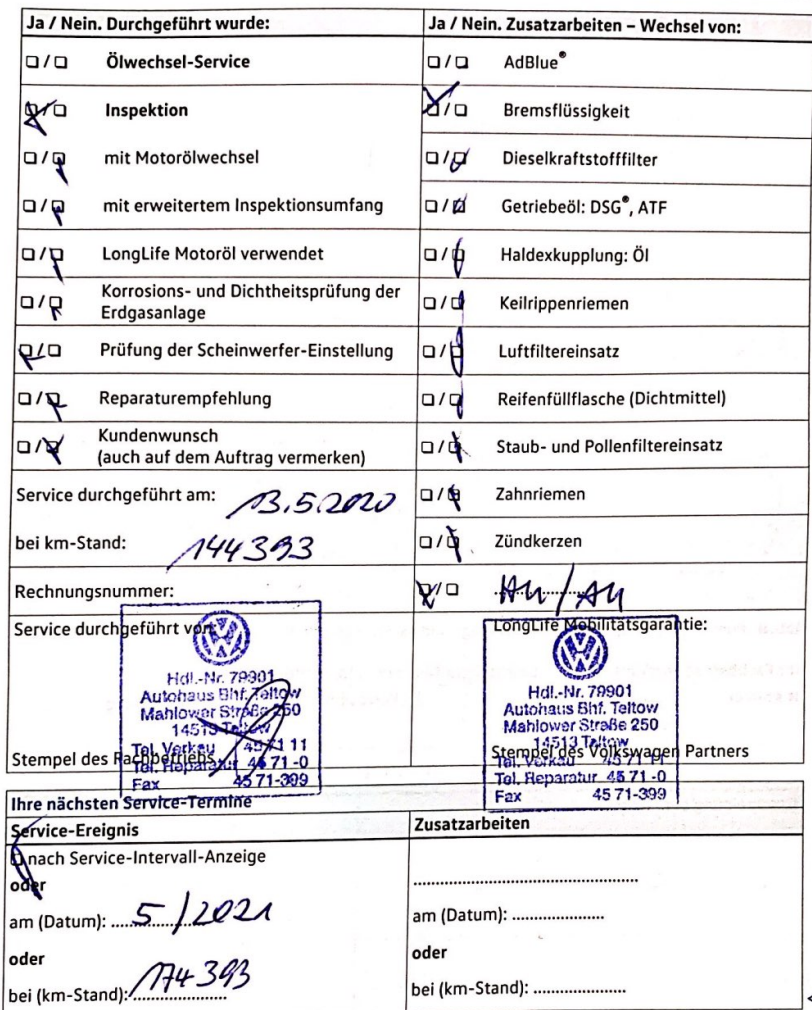 Ja / Nein. Durchgeführt wurde:
Ja / Nein. Zusatzarbeiten – Wechsel von:
☐ / ☐ Ölwechsel-Service
☐ / ☐ AdBlue®
☒ / ☐ Inspektion
☒ / ☐ Bremsflüssigkeit
☐ / ☒ mit Motorölwechsel
☐ / ☒ Dieselkraftstofffilter
☐ / ☒ mit erweitertem Inspektionsumfang
☐ / ☒ Getriebeöl: DSG®, ATF
☐ / ☒ LongLife Motoröl verwendet
☐ / ☒ Haldexkupplung: Öl
☐ / ☒ Korrosions- und Dichtheitsprüfung der
Erdgasanlage
☐ / ☒ Keilrippenriemen
☒ / ☐ Prüfung der Scheinwerfer-Einstellung
☐ / ☒ Luftfiltereinsatz
☐ / ☒ Reparaturempfehlung
☐ / ☒ Reifenfüllflasche (Dichtmittel)
☐ / ☒ Kundenwunsch
(auch auf dem Auftrag vermerken)
☐ / ☒ Staub- und Pollenfiltereinsatz
Service durchgeführt am: 13.5.2020
☐ / ☒ Zahnriemen
bei km-Stand: 144393
☐ / ☒ Zündkerzen
Rechnungsnummer:
☒ / ☐ HU / AU
Service durchgeführt von:
LongLife Mobilitätsgarantie:
VW
Hdl.-Nr. 79901
Autohaus Bhf. Teltow
Mahlower Straße 250
14513 Teltow
Tel. Verkau 45 71 11
Tel. Reparatur 45 71 -0
Fax 45 71-399
Stempel des Fachbetriebs
VW
Hdl.-Nr. 79901
Autohaus Bhf. Teltow
Mahlower Straße 250
14513 Teltow
Tel. Verkau 45 71 11
Tel. Reparatur 45 71 -0
Fax 45 71-399
Stempel des Volkswagen Partners
Ihre nächsten Service-Termine
Service-Ereignis
Zusatzarbeiten
☒ nach Service-Intervall-Anzeige
oder
am (Datum): 5/2021
am (Datum): ......................
oder
oder
bei (km-Stand): 174393
bei (km-Stand): ......................